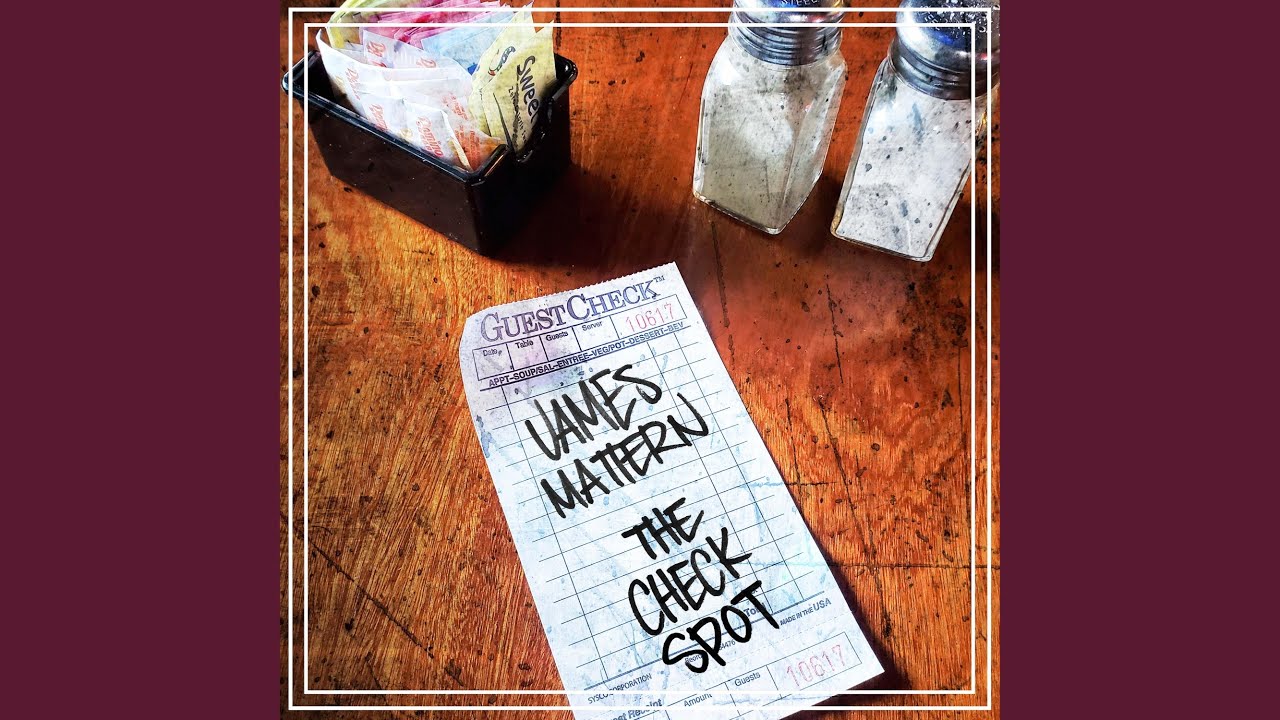 Sweet
Domino
GUEST CHECK™
Date
Table
Guests
Server
10617
APPT-SOUP/SAL-ENTREE-VEG/POT-DESSERT-BEV
JAMES
MATTERN
THE
CHECK
SPOT
MADE IN THE USA
SYSCO CORPORATION
Amount
Guests
10617